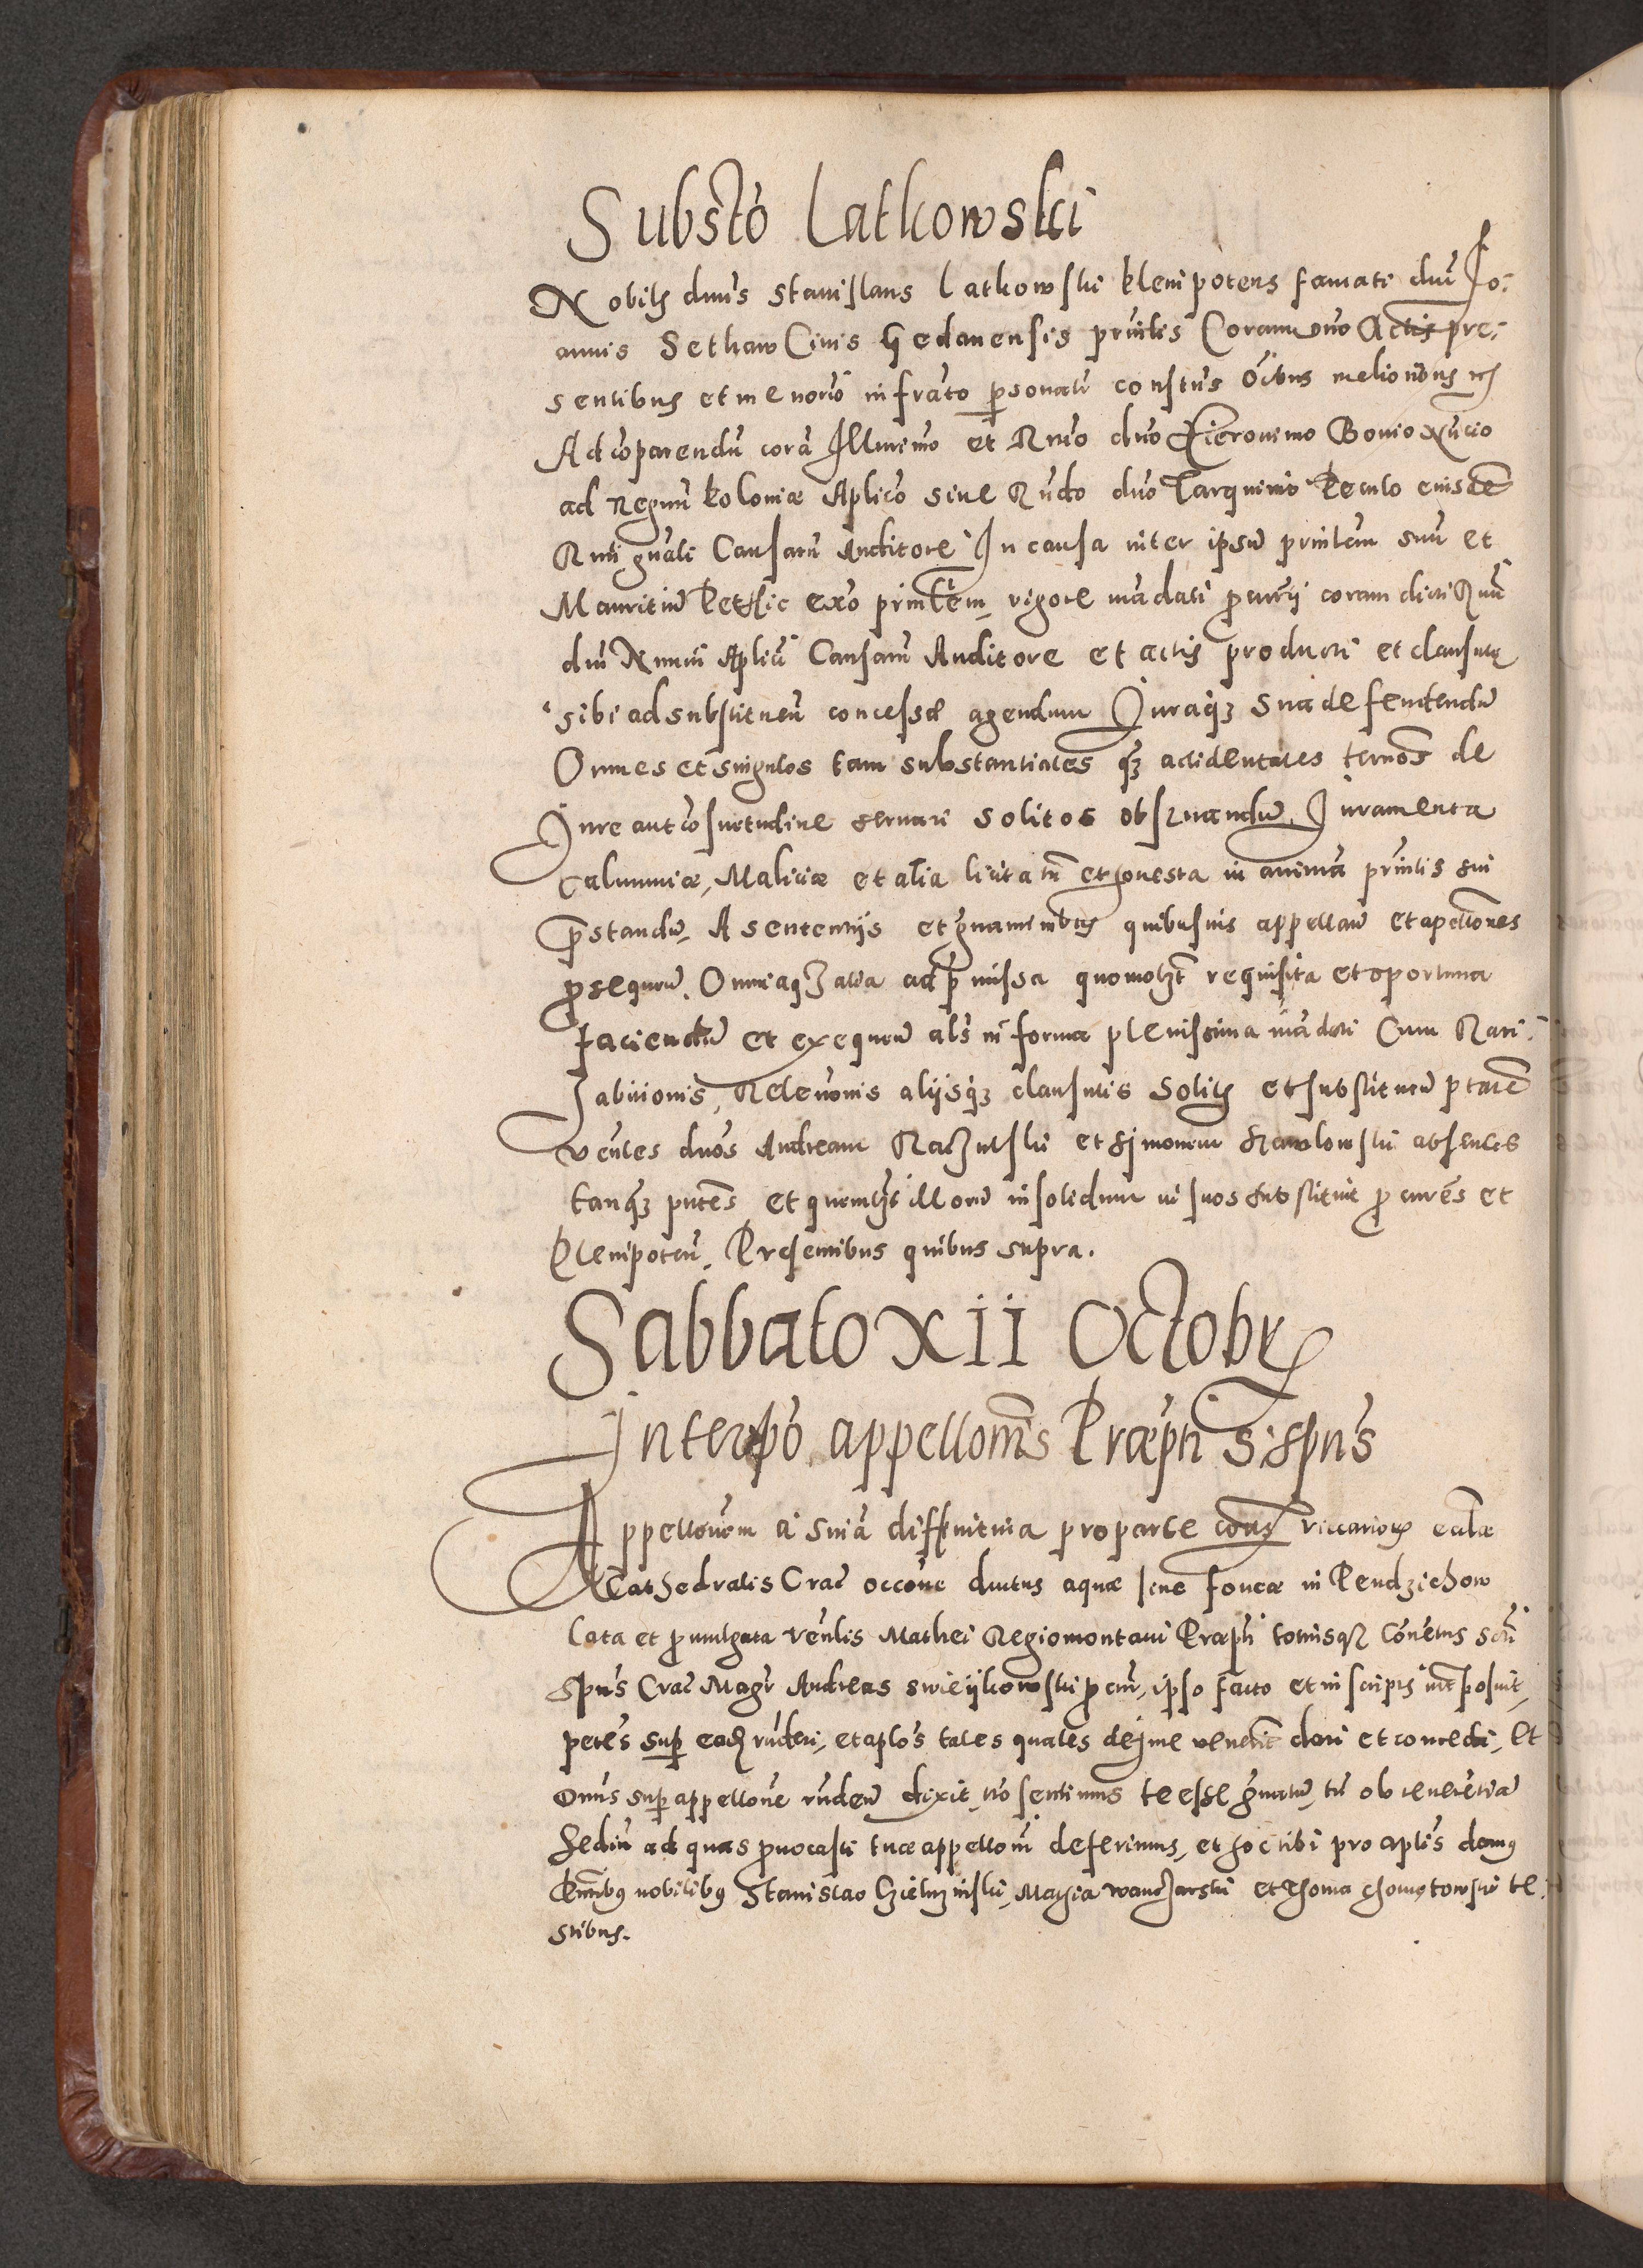 Substo Latkowski
Nobilis dnus Stanislaus Latkowski Plenipotens famati dni Jo:
annis Sethaw Civis Gedanensis prnlis Coram Actis pre:
sentibus et infrato personalr constus oibus melioribus
Ad coparendu cora Illmo et Rmo dno Hieronimo Bovio Nucio
ad Regnu Poloniæ Aplico sive Rndo dno Tarquinio Peculo eiusde
Rmi gnali Causaru Auditore In causa inter ipsu prnlem suu et
Mauritiu exo vigore madati coram dicti Rmi
dni Nuncii Aplici Causaru Auditore et actis producti et clausulæ
sibi ad substituen concessæ agendum Juraq3 sua defendendu
Omnes et singulos tam substantiales q3 accidentales termos de
Jure aut cosuetudine servari solitos observandu, Juramenta
Calumniæ, Maliciæ et alia licita tn et honesta in anima prnlis sui
prestandu, A sententijs et gnaminibus quibusuis appellan et apellones
prosequen, Omniaq3 alia ad premissa quomolt requisita et oportuna
faciendu et exequen als in forma plenissima madati Cum Rati:
habitionis, Relevonis alijsq3 clausulis solitis et substituen ptatem
venles dnos Andream et Simonem absentes
tanq3 pntes et quemlt illoru in solidum in suos substituit procures et
Plenipoten, Presentibus quibus supra.
Sabbato XII Octobr
Interpo appellonis Præpti S. Spus
Appellonem a snia diffinitiua pro parte vicarioru eccliæ
Cathedralis Crac occone ductus aquæ siue foueæ in Pendzichow
lata et promulgata venlis Mathei Regiomontani Præpti totiusq3 Conetus scti
Spus Crac Magr Andreas procur, ipso facto et in scriptis interposuit,
petes super eade rnderi, et aplos tales quales de jure venerit dari et concedi, Et
Dnus super appellone rnden dixit, no sentimus te esse grnatu, tn ob reuerentia
Sediu ad quas prouocasti tuæ appelloni deferimus, et hoc tibi pro aplis damus
Pntibus nobilibus Stanislao et Thoma te:
stibus.